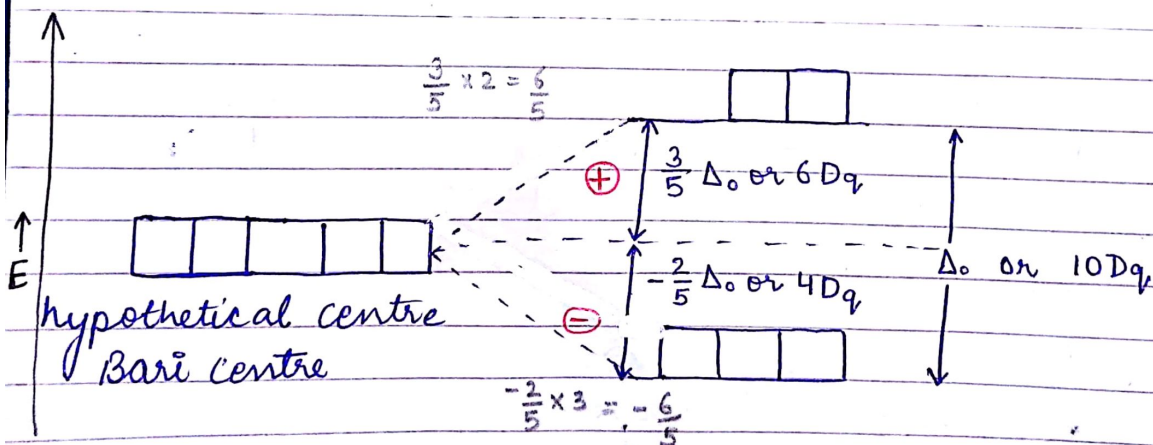 3/5 × 2 = 6/5
+
3/5 Δ₀ or 6Dq
↑
E
-2/5 Δ₀ or 4Dq
Δ₀ or 10Dq
hypothetical centre
Bari centre
-
-2/5 × 3 = -6/5